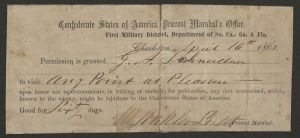 Confederate States of America, Provost Marshal's Office,
First Military District, Department of So. Ca., Ga. & Fla.
Charleston April 16th 1863.
Permission is granted J.
to visit Any Point at Pleasure
upon honor not to communicate, in writing or verbally, for publication, any fact ascertained, which,
known to the enemy, might be injurious to the Confederate States of America.
Good for days
Provost Marshal.